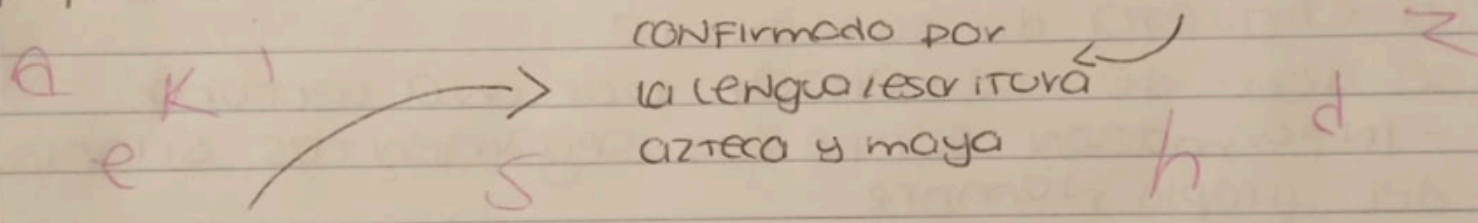 confirmado por
la lengua/escritura
azteca y maya
a k i z
e s h d